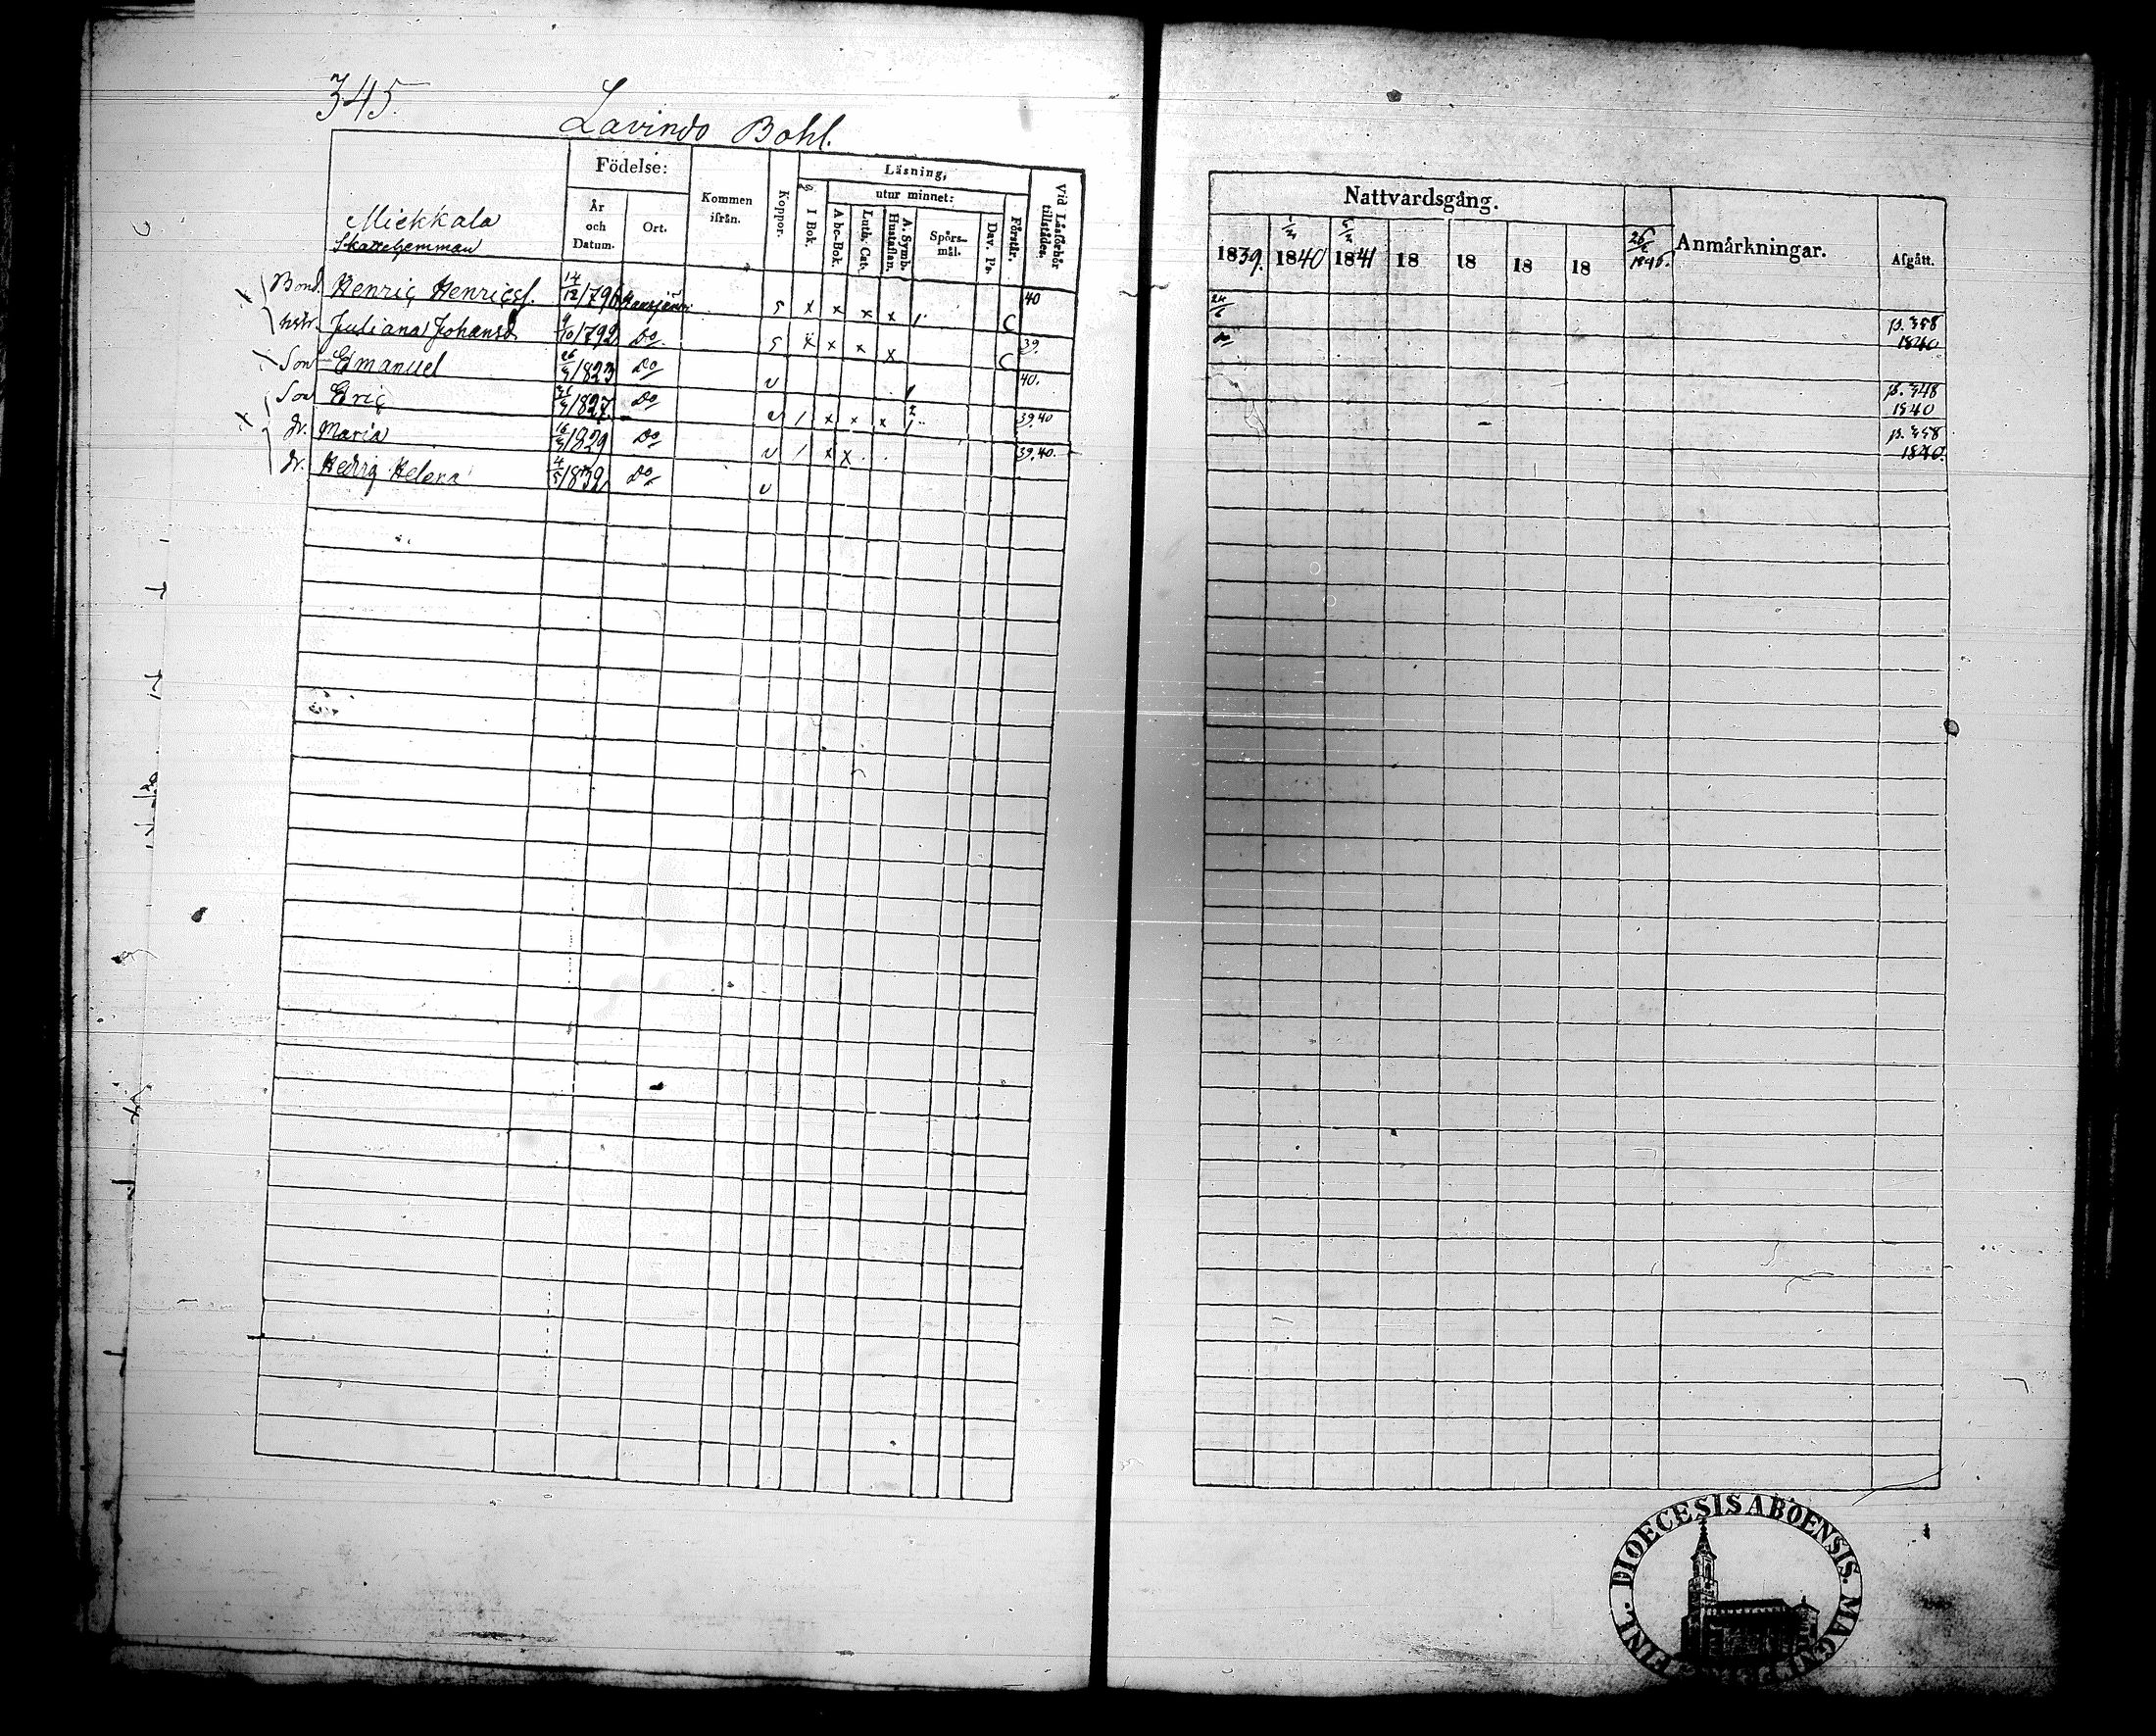 345.
Lavindo Bohl.
Födelse:
Kommen ifrån.
Koppor.
Läsning,
utur minnet:
I Bok.
Abc-Bok.
Luth. Cat.
A. Symb. Hustaflan.
Spörs-mål.
Dav. Ps.
Förstår.
Vid Läsförhör tillstädes.
År och Datum.
Ort.
Miekkala
Skattehemman
Bond. Henric Henricss. 14/12 1796 5 x x x x 1 C 40
hstr. Juliana Johansd. 9/10 1792 Do 5 x x x x C 39
Son Emanuel 26/3 1823 Do v 40.
Son Eric 1827 Do v / x x x 39.40
dr. Maria 16/3 1829 Do v / x x 39.40.
dr. Hedvig Helena 4/5 1832 Do v
Nattvardsgång.
Anmärkningar.
Afgått.
1839. 1/2 1840 5/2 1841 18 18 18 18 26/1 1846.
24/6
p. 358
1840
p. 348
1840
p. 358
1840.
FINL. DIOECESIS ABOENSIS. MAGNI